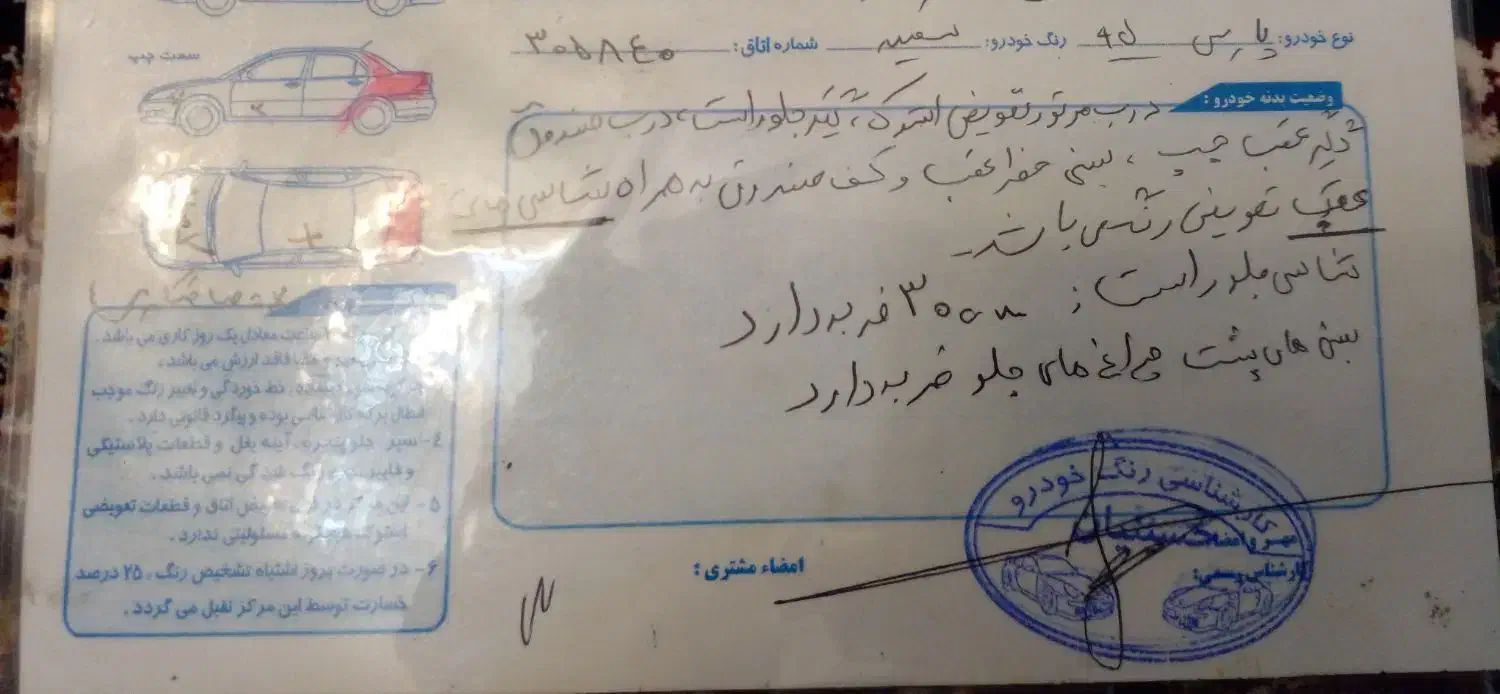 نوع خودرو: پارس ۹۵ رنگ خودرو: سفید شماره اتاق: ۳۰۵۸۴۰
سمت چپ
وضعیت بدنه خودرو:
درب موتور تعویض استوک، گلگیر جلو راست، درب صندوق
گلگیر عقب چپ، سینی عقب و کف صندوق به همراه شاسی های
عقب تعویض رنگ می باشد.
شاسی جلو راست: ۳۰ cm ضربه دارد
سینی های پشت چراغ های جلو ضربه دارد
ساعت معادل یک روز کاری می باشد.
فاقد ارزش می باشد.
خط خوردگی و تغییر رنگ موجب
ابطال برگه کارشناسی بوده و پیگرد قانونی دارد.
۴- سپر جلو پنجره، آینه بغل و قطعات پلاستیکی
و فایبر رنگ شدگی نمی باشد.
۵- این مرکز در تعویض اتاق و قطعات تعویضی
استوک مسئولیتی ندارد.
۶- در صورت بروز اشتباه تشخیص رنگ، ۲۵ درصد
خسارت توسط این مرکز تقبل می گردد.
امضاء مشتری:
کارشناسی رنگ خودرو
مهر و امضاء
کارشناس رسمی: